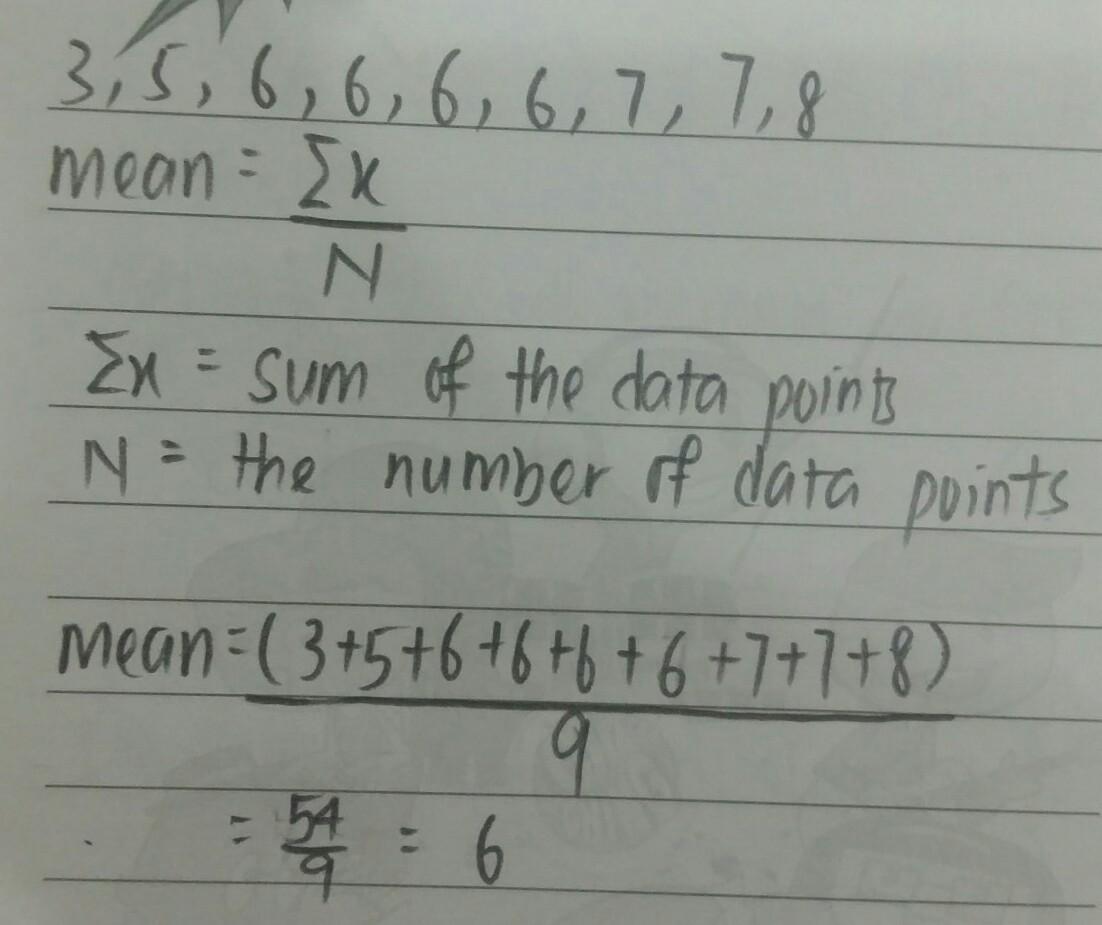 3, 5, 6, 6, 6, 6, 7, 7, 8
mean = Σx
N
Σx = sum of the data points
N = the number of data points
mean = (3+5+6+6+6+6+7+7+8)
9
= 54/9 = 6